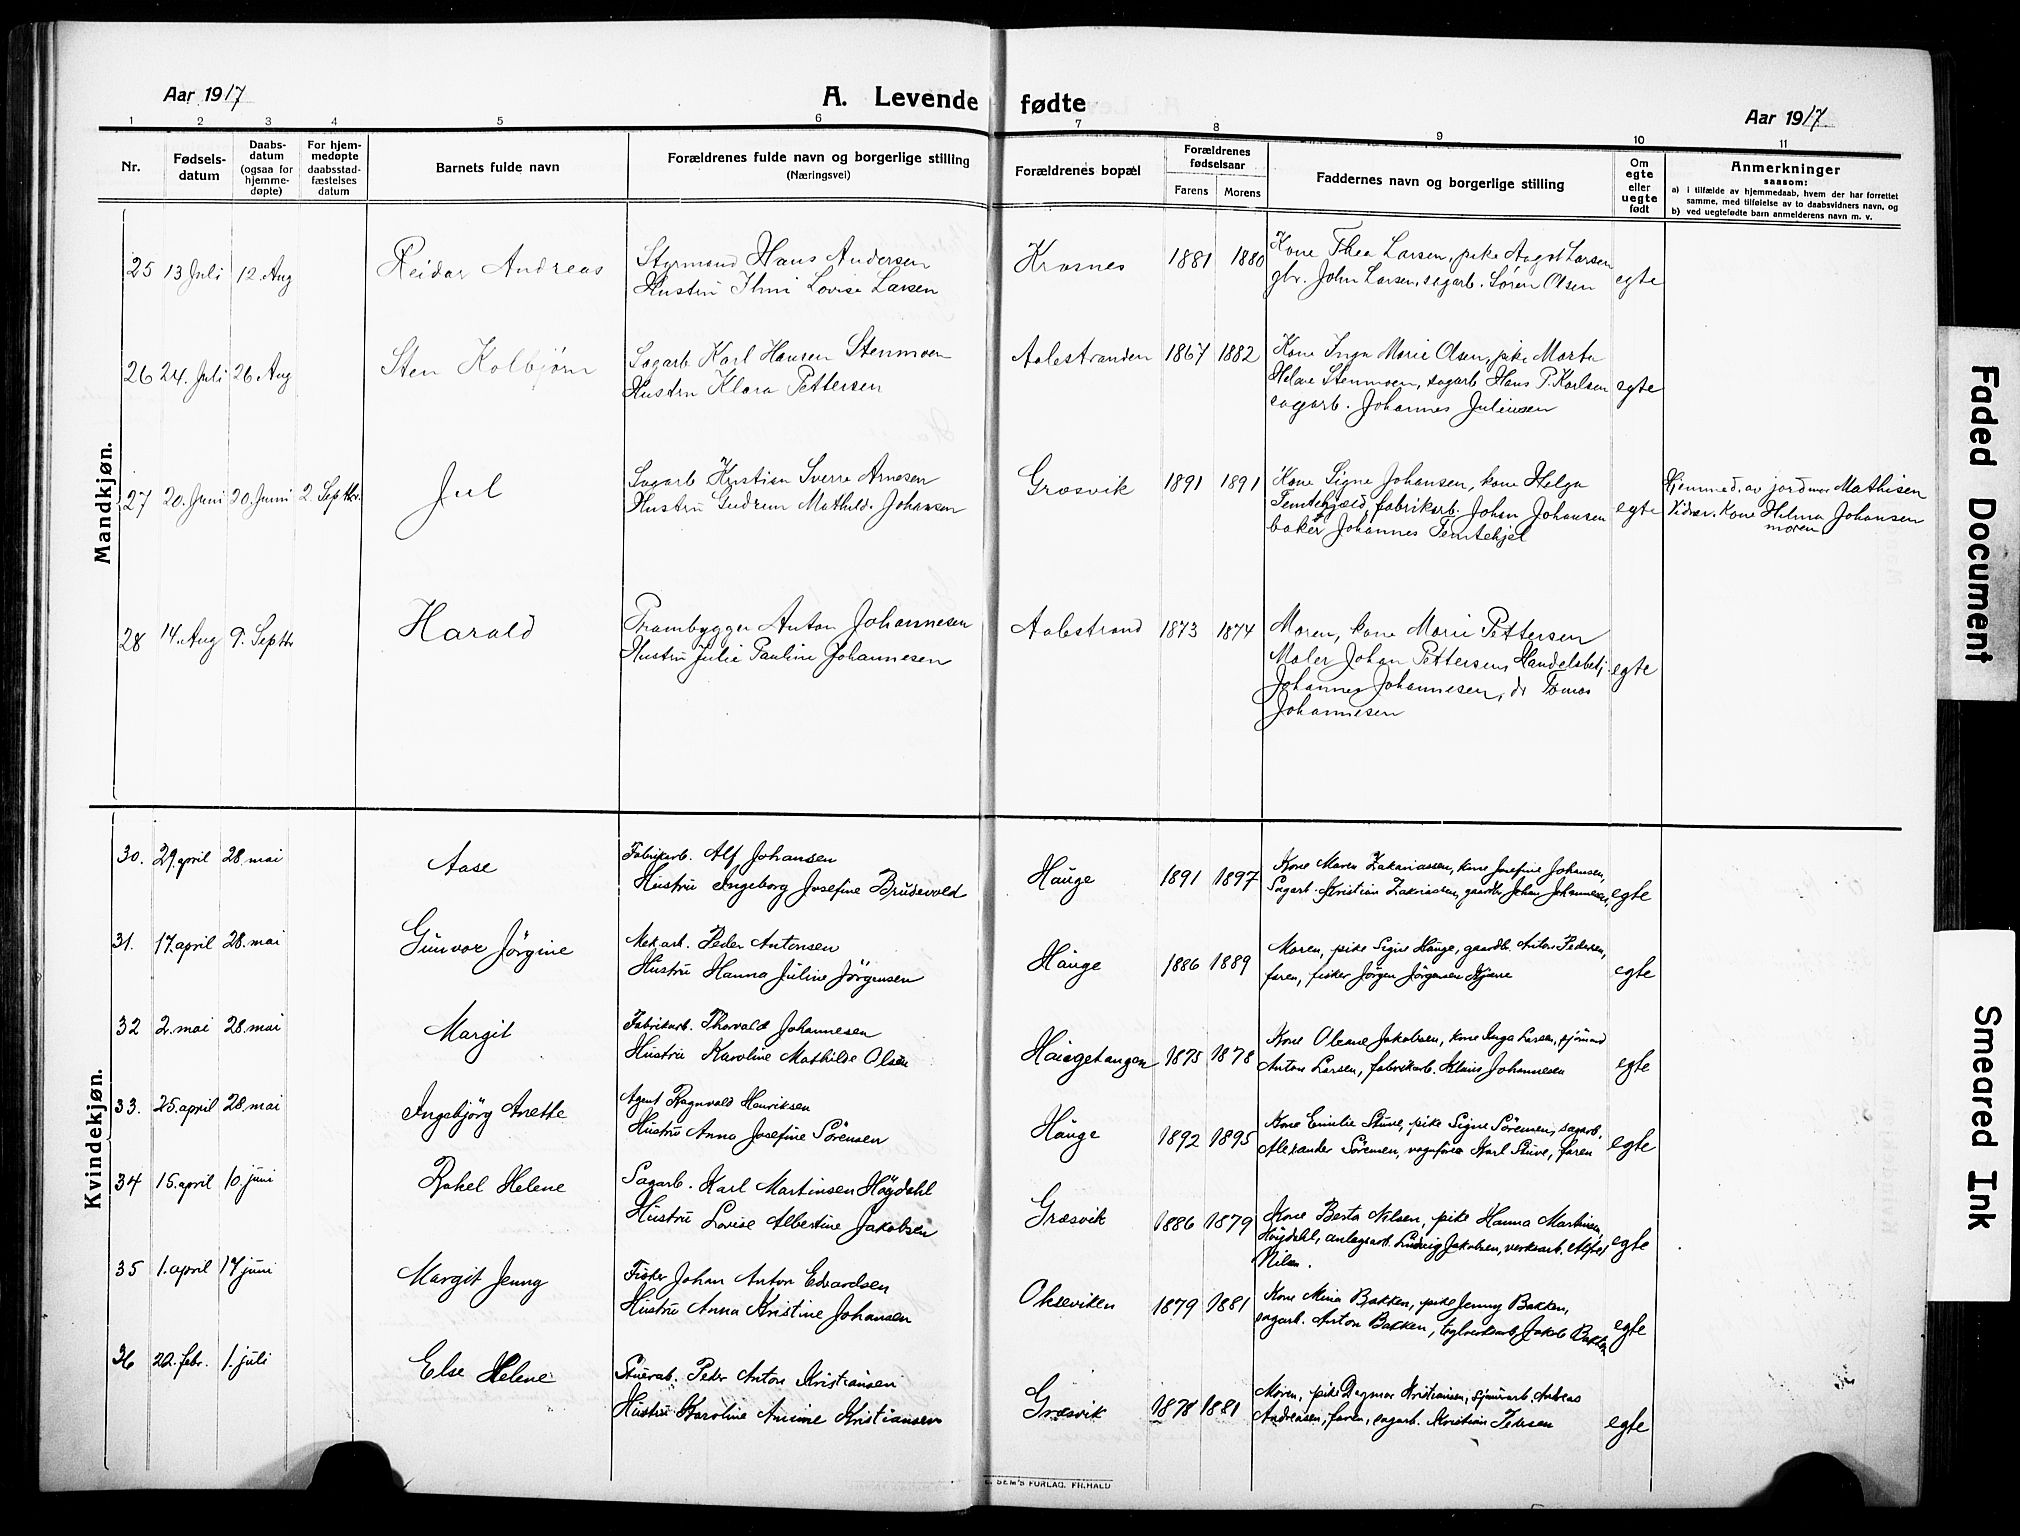 Aar 1917
A. Levende fødte
Aar 1917
1 2 3 4 5 6 7 8 9 10 11
Nr.
Fødsels-
datum
Daabs-
datum
(ogsaa for
hjemme-
døpte)
For hjem-
medøpte
daabsstad-
fæstelses
datum
Barnets fulde navn
Forældrenes fulde navn og borgerlige stilling
(Næringsvei)
Forældrenes bopæl
Forældrenes
fødselsaar
Farens Morens
Faddernes navn og borgerlige stilling
Om
egte
eller
uegte
født
Anmerkninger
saasom:
a) i tilfælde av hjemmedaab, hvem der har forrettet
samme, med tilføielse av to daabsvidners navn, og
b) ved uegtefødte barn anmelderens navn m. v.
Mandkjøn.
25 13 Juli 12. Aug Reidar Andreas
Styrmand Hans Andersen
Hustru Thni Lovise Larsen
Krosnes 1881 1880
Kone Thea Larsen, pike Aagot Larsen
gbr. John Larsen, sagarb. Søren Olsen
egte
26 24. Juli 26 Aug Sten Kolbjørn
Sagarb Karl Hansen Stenmoen
Hustru Klara Pettersen
Aalestranden 1867 1882
Kone Inga Marie Olsen, pike Marta
Helene Stenmoen, sagarb Hans P. Karlsen
sagarb. Johannes Juliussen
egte
27 20. Juni 20. Juni 2. Septbr. Jul
Sagarb Kristian Sverre Arnesen
Hustru Gudrun Mathilde Johansen
Græsvik 1891 1891
Kone Signe Johansen, kone Helga
Temtehjæld, fabrikarb. Johan Johansen
baker Johannes Temtehjel
egte
Hjemmed. av jordmor Mathisen
Vidner. Kone Helma Johansen
moren
28 14. Aug 9. Septbr Harald
Prambygger Anton Johannesen
Hustru Julie Pauline Johannesen
Aalestrand 1873 1874
Moren, kone Marie Pettersen
Maler Johan Pettersen, Handelsbetj.
Johannes Johannesen, do Tomas
Johannesen
egte
Kvindekjøn.
30. 29. april 28. mai Aase
Fabrikarb. Alf Johansen
Hustru Ingeborg Josefine Brudevold
Hauge 1891 1897
Kone Maren Zakariassen, kone Josefine Johansen,
Sagarb. Kristian Zakriassen, gaardbr Johan Johannesen,
egte
31. 17. april 28. mai Gunvor Jörgine
Mek. arb. Peder Antonsen
Hustru Hanna Juline Jörgensen
Hauge 1886 1889
Moren, pike Signe Hauge, gaardb. Anton Pedersen,
faren, fisker Jörgen Jörgensen Kjærre
egte
32 2. mai 28. mai Margit
Fabrikarb. Thorvald Johannesen
Hustru Karoline Mathilde Olsen
Haugetangen 1875 1878
Kone Oleane Jakobsen, kone Inga Larsen, sjömand
Anton Larsen, fabrikarb. Klaus Johannesen
egte
33. 25. april 28. mai Ingebjörg Anette
Agent Ragnvald Henriksen
Hustru Anna Josefine Sörensen
Hauge 1892 1895
Kone Emilie Stuve, pike Signe Sörensen, sagarb.
Alexander Sörensen, vognförer Karl Stuve, faren
egte
34 15. april 10. juni Rakel Helene
Sagarb. Karl Martinsen Högdahl
Hustru Lovise Albertine Jakobsen
Græsvik 1886 1879
Kone Berta Nilsen, pike Hanna Martinsen
Högdahl, anlegsarb. Ludvig Jakobsen, verksarb. Alfred
Nilsen.
egte
35 1. april 17 juni Margit Jenny
Fisker Johan Anton Edvardsen
Hustru Anna Kristine Johansen
Okseviken 1879 1881
Kone Mina Bakken, pike Jenny Bakken,
sagarb. Anton Bakken, teglverksarb. Jakob Bakken
egte
36 22. febr. 1. juli Else Helene
Stuerab. Peder Anton Kristiansen
Hustru Karoline Annine Kristiansen
Græsvik 1878 1881
Moren, pike Dagmar Kristiansen, sjauerarb. Andreas
Andreasen, faren, sagarb. Kristian Pedersen
egte
SEM'S FORLAG. FR.HALD
Faded Document
Smeared Ink